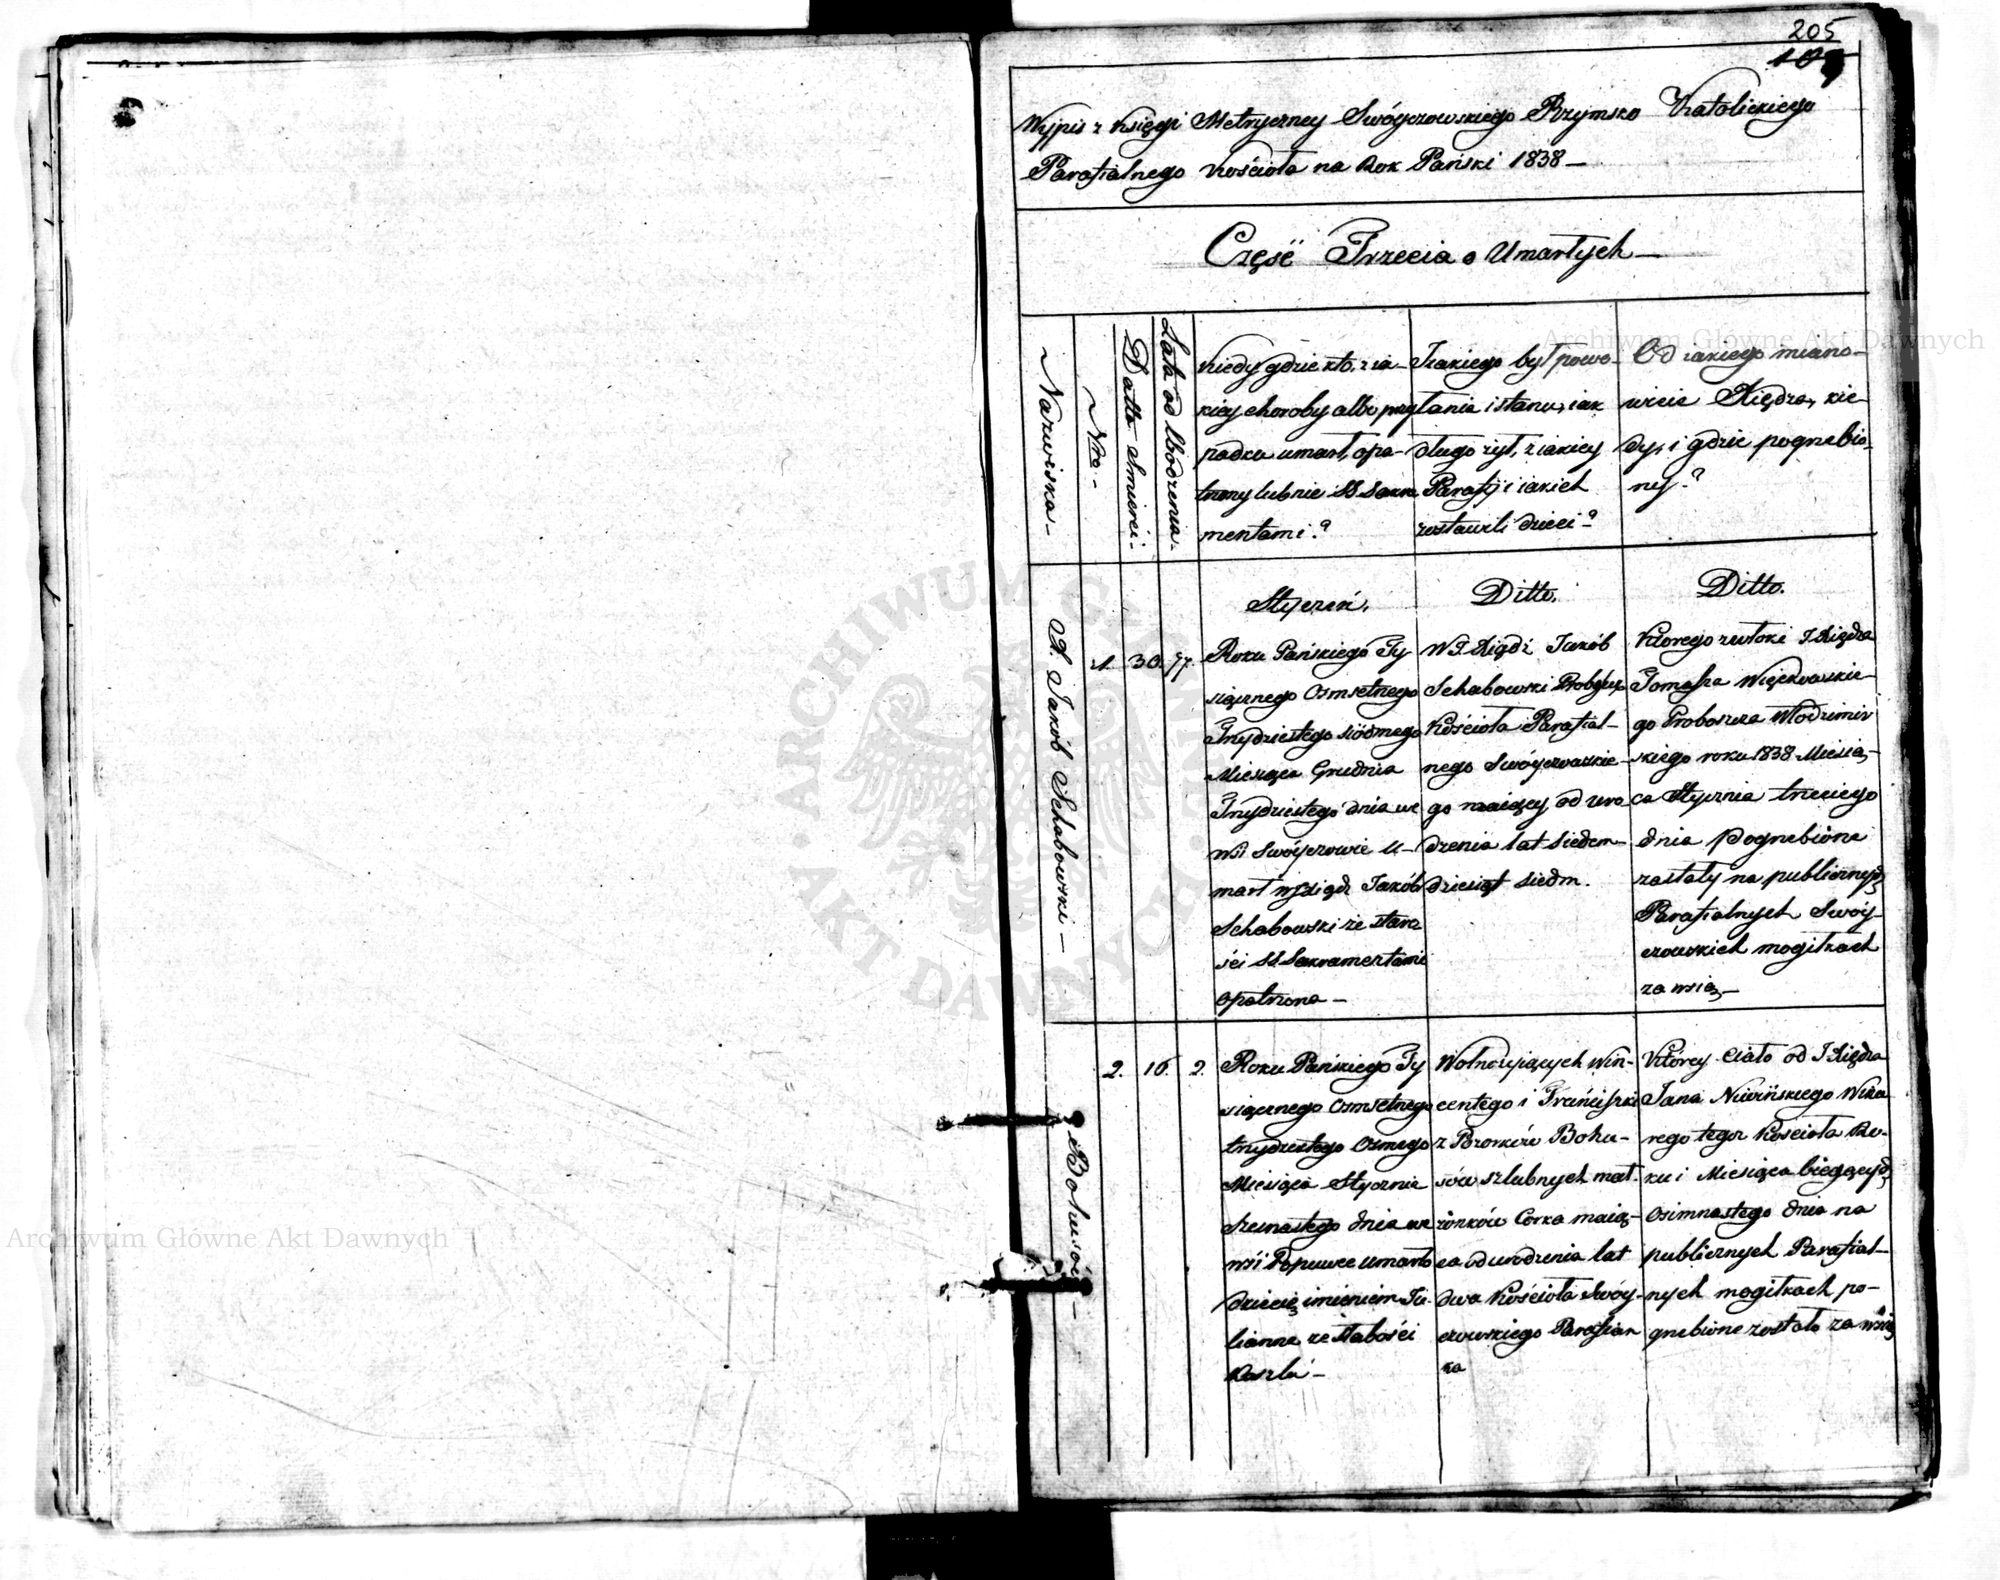 205
109
Wypis z Księgi Metryczney Swóyczowskiego Rzymsko Katolickiego
Parafialnego Kościoła na Rok Pański 1838 —
Część Trzecia o Umarłych —
Nazwiska —
Nro. —
Datta Smierci. —
Lata od Urodzenia. —
Kiedy gdzie kto, z ia-
kiey choroby albo przy-
padku umarł, opa-
trzony lub nie SS Sakra
mentami?
Z iakiego był powo-
łania i stanu, iak
długo żył, z iakiey
Parafij i iakich
zostawili dzieci?
Od iakiego miano-
wicie Xiędza, kie-
dy, i gdzie pogrebio-
ny?
X. Jakób Schabowski —
1.
30.
77.
Styczeń.
Roku Pańskiego Ty
siącznego Osmsetnego
Trzydziestego siódmego
Miesiąca Grudnia
Trzydziestego dnia we
wsi Swóyczowie u-
marł WJXiądz Jakób
Schabowski ze staro
ści SS Sakramentami
opatrzona —
Ditto.
WJ. Xiądz Jakób
Schabowski Proboszcz
Kościoła Parafial-
nego Swóyczowskie-
go maiący od uro
dzenia lat siedem-
dziesiąt siedm.
Ditto.
Którego zwłoki J Xiędza
Tomasza Więckowskie-
go Proboszcza Włodzimir
skiego roku 1838 Miesią-
ca Stycznia trzeciego
dnia Pogrebione
zostały na publicznych
Parafialnych Swóy-
czowskich mogiłkach
za wsią —
Bohusów —
2.
16.
2.
Roku Pańskiego Ty
siącznego Osmsetnego
trzydziestego Osmego
Miesiąca Stycznia
Szesnastego dnia we
wsi Popuwce umarło
dziecię imieniem Ju-
lianna ze słabości
Kaszlu —
Wolnożyiących Win-
centego i Franciszki
z Bohu-
sów szlubnych mał-
żonków Corka maią-
ca od urodzenia lat
dwa Kościoła Swóy-
czowskiego Parafian
ka
Którey Ciało od J Xiędza
Jana Wika
rego tegoż Kościoła Ro-
ku i Miesiąca bieżących
Osimnastego dnia na
publicznych Parafial-
nych mogiłkach po-
grebione zostało za wsią
Archiwum Główne Akt Dawnych
Archiwum Główne Akt Dawnych
ARCHIWUM GŁÓWNE · AKT DAWNYCH ·